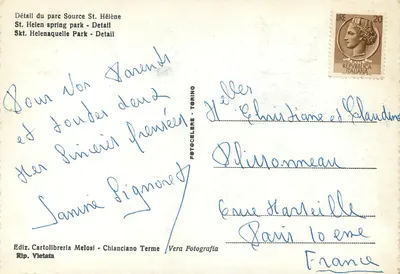 Détail du parc Source St. Hélène
St. Helen spring park - Detail
Skt. Helenaquelle Park - Detail
20
Pour Vos Parents
et toutes deux
Mes Sincères Pensées
FOTOCELERE - TORINO
Melles
Christiane et Claudine
Plissonneau
6 rue Marseille
Paris 10 eme
France
Ediz. Cartolibreria Melosi - Chianciano Terme
Rip. Vietata
Vera Fotografia